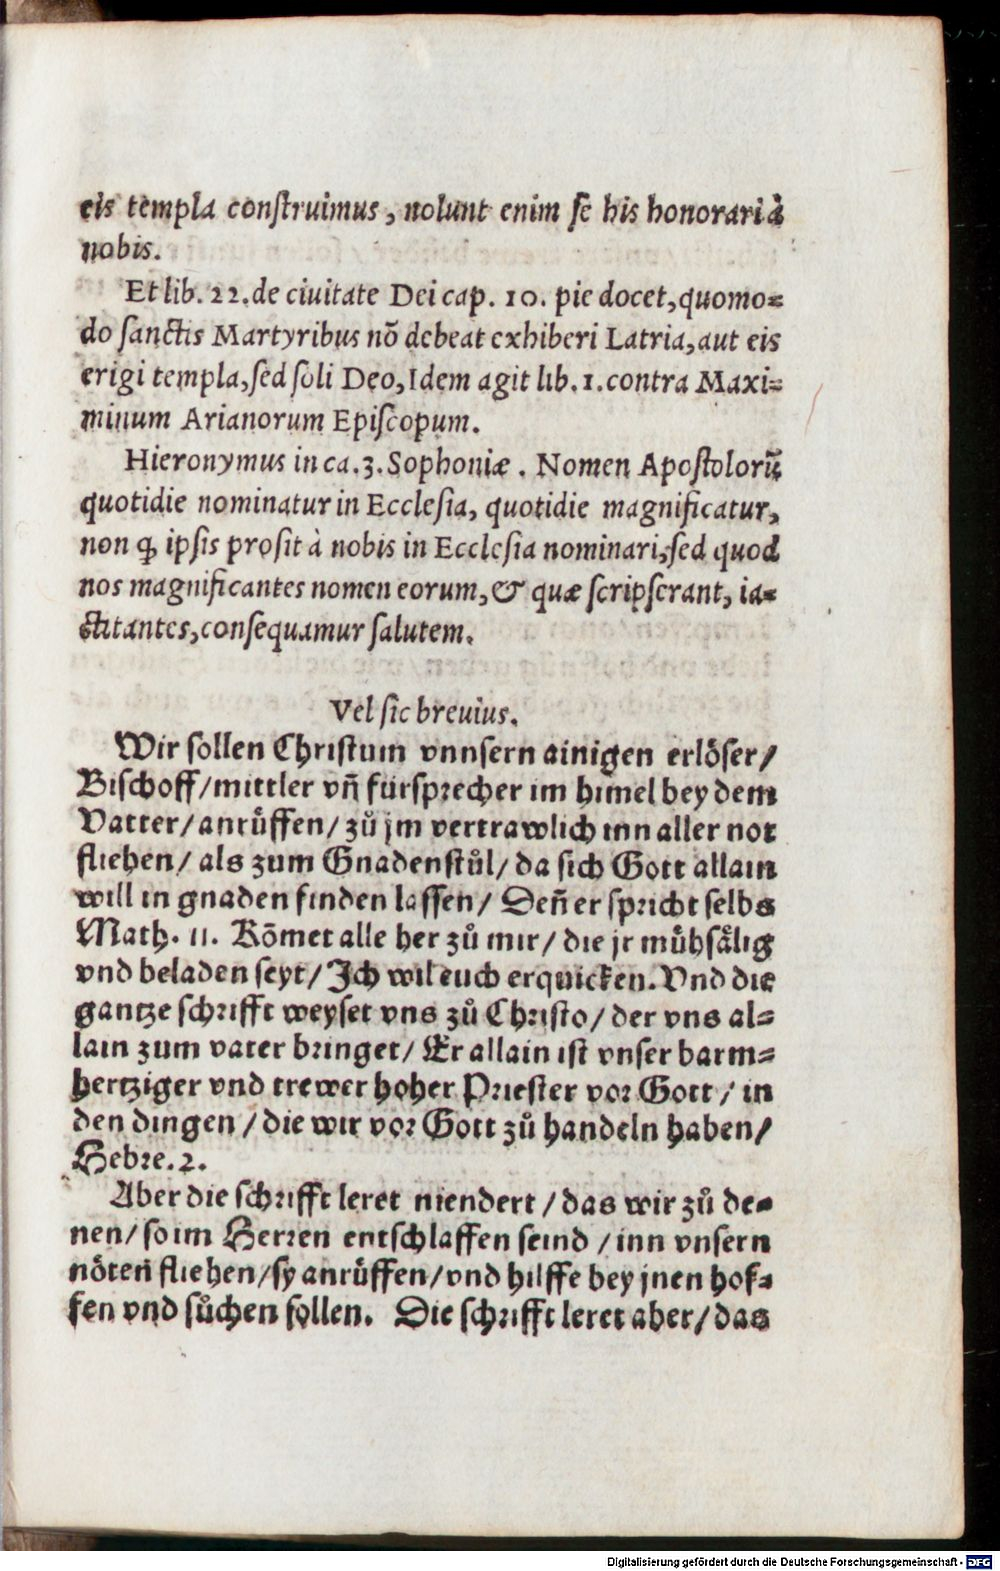 eis templa construimus, nolunt enim se his honorari à
nobis.
Et lib. 22. de ciuitate Dei cap. 10. pie docet, quomo=
do sanctis Martyribus nõ debeat exhiberi Latria, aut eis
erigi templa, sed soli Deo, Idem agit lib. 1. contra Maxi=
minum Arianorum Episcopum.
Hieronymus in ca. 3. Sophoniæ. Nomen Apostolorũ
quotidie nominatur in Ecclesia, quotidie magnificatur,
non ꝙ ipsis prosit à nobis in Ecclesia nominari, sed quod
nos magnificantes nomen eorum, & quæ scripserant, ia=
ctitantes, consequamur salutem.
Vel sic breuius.
Wir sollen Christum vnnsern ainigen erlöser/
Bischoff/mittler vñ fürsprecher im himel bey dem
Vatter/anrüffen/ zů jm vertrawlich inn aller not
fliehen/ als zum Gnadenstůl/ da sich Gott allain
will in gnaden finden lassen/ Deñ er spricht selbs
Math. 11. Kõmet alle her zů mir/ die jr mühsälig
vnd beladen seyt/ Ich wil euch erquicken. Vnd die
gantze schrifft weyset vns zů Christo/ der vns al=
lain zum vater bringet/ Er allain ist vnser barm=
hertziger vnd trewer hoher Priester vor Gott/ in
den dingen/ die wir vor Gott zů handeln haben/
Hebre. 2.
Aber die schrifft leret niendert/ das wir zů de=
nen/ so im Herren entschlaffen seind/ inn vnsern
nöten fliehen/sy anrüffen/vnd hilffe bey jnen hof=
fen vnd sůchen sollen. Die schrifft leret aber/ das
Digitalisierung gefördert durch die Deutsche Forschungsgemeinschaft - DFG